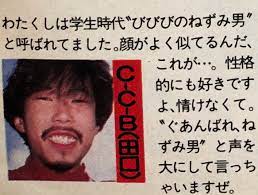 わたくしは学生時代〝びびびのねずみ男〟
と呼ばれてました。顔がよく似てるんだ、
これが…。性格
的にも好きです
よ、情けなくて。
〝ぐあんばれ、ね
ずみ男〟と声を
大にして言っち
ゃいますぜ。
C-C-B(田口)